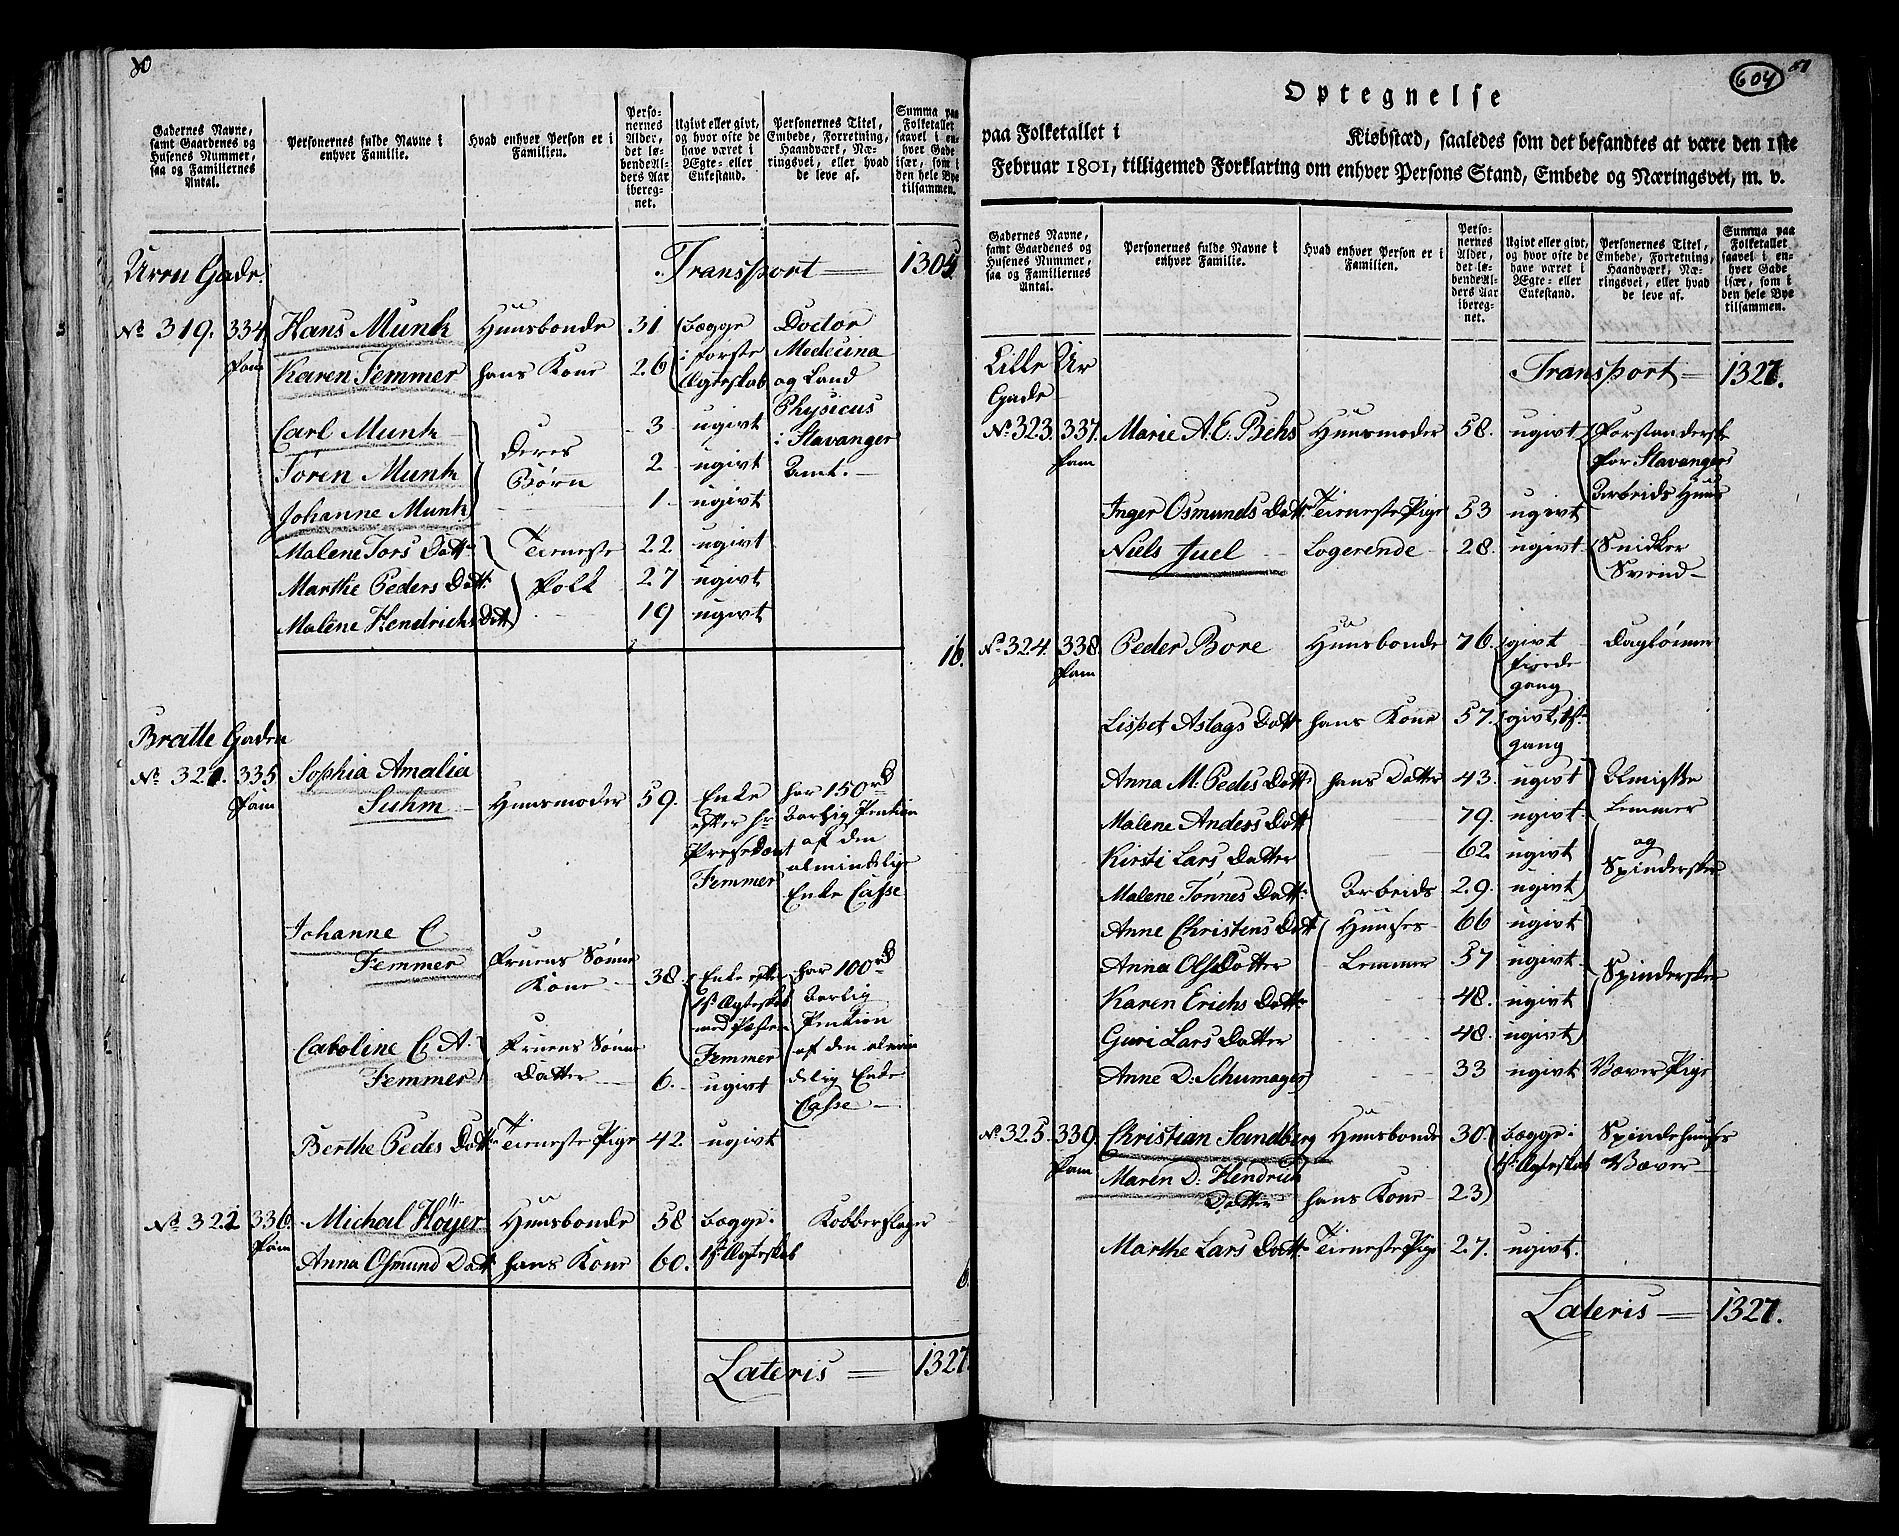 80
Gadernes Navne, samt Gaardenes og Husenes Nummer, saa og Familiernes Antal.
Personernes fulde Navne i enhver Familie.
Hvad enhver Person er i Familien.
Personernes Alder, det løbende Alders Aar iberegnet.
Ugivt eller givt, og hvor ofte de have været i Ægte- eller Enkestand.
Personernes Titel, Embede, Forretning, Haandværk, Næringsvei, eller hvad de leve af.
Summa paa Folketallet saavel i enhver Gade især, som i den hele Bye tilsammen.
Urru Gade. Transport 1305
No 319. 334 Fam Hans Munk Huusbonde 31 begge Doctor
Karen Femmer hans Kone 26 i første Ægteskab Medecina og Land
Carl Munk 3 ugivt Physicus
Deres i Stavanger
Søren Munk Børn 2 ugivt Amt.
Johanne Munk 1 ugivt
Malene Tors Datt: Tieneste 22 ugivt
Marthe Peders Datt: Folk 27 ugivt
Malene Hendrichs Datt 19 ugivt
16.
Bratte Gaden
No 321. 335 Fam Sophia Amalia
Suhm Huusmoder 59. Enke har 150 rd
efter hr Aarlig Pention
Presedent af den
Femmer almindelige
Enke Casse
Johanne C
Femmer Fruens Sønne
Kone 38 Enke efter har 100 rd
1ste Ægteskab Aarlig
med Pention
Caroline C. A. Fruens Sønne Femmer af den almin
Femmer Datter 6. ugivt delig Enke
Casse
Berthe Peders Datt: Tieneste Pige 42. ugivt
No 322 336. Fam Michael Höyer Huusbonde 58 begge i Kobberslager
Anna Osmund Datt hans Kone 60. 1st Ægteskab
6
Lateris 1327.
604
81
Optegnelse
paa Folketallet i Kiøbstæd, saaledes som det befandtes at være den 1ste
Februar 1801, tilligemed Forklaring om enhver Persons Stand, Embede og Næringsvei, m. v.
Gadernes Navne, samt Gaardenes og Husenes Nummer, saa og Familiernes Antal.
Personernes fulde Navne i enhver Familie.
Hvad enhver Person er i Familien.
Personernes Alder, det løbende Alders Aar iberegnet.
Ugivt eller givt, og hvor ofte de have været i Ægte- eller Enkestand.
Personernes Titel, Embede, Forretning, Haandværk, Næringsvei, eller hvad de leve af.
Summa paa Folketallet saavel i enhver Gade især, som i den hele Bye tilsammen.
Lille Ur Transport 1327.
Gade
No 323. 337. Fam Marie A. E. Behs Huusmoder 58. ugivt Forstanderske
for Stavangers
Arbeids Huus
Inger Osmunds Datt: Tieneste Pige 53 ugivt
Niels Juel Logerende 28. ugivt Snidker
Svend
No 324. 338. Fam Peder Bore Huusbonde 76. givt Daglønner
fierde
gang
Lispet Aslags Datt hans Kone 57. givt 1ste
gang
Anna M. Peders Datt: hans Datter 43. ugivt Almiske
Malene Anders Datt 79. ugivt Lemmer
Kirsti Lars Datter 62. ugivt og
Malene Tönnes Datt: Arbeids 29. ugivt Spindersker
Anne Christens Datt Huuses 66 ugivt
Anna Ols Datter Lemmer 57 ugivt Spindersker
Karen Erichs Datter 48. ugivt
Guri Lars Datter 48. ugivt
Anne D. Schumager 33 ugivt Væver Pige
No 325. 339. Fam Christian Sandberg Huusbonde 30 begge i Spindehuuses
1st Ægteskab Væver
Maren D. Hendrich
Datter hans Kone 23
Marthe Lars Datt: Tieneste Pige 27. ugivt.
Lateris 1327.